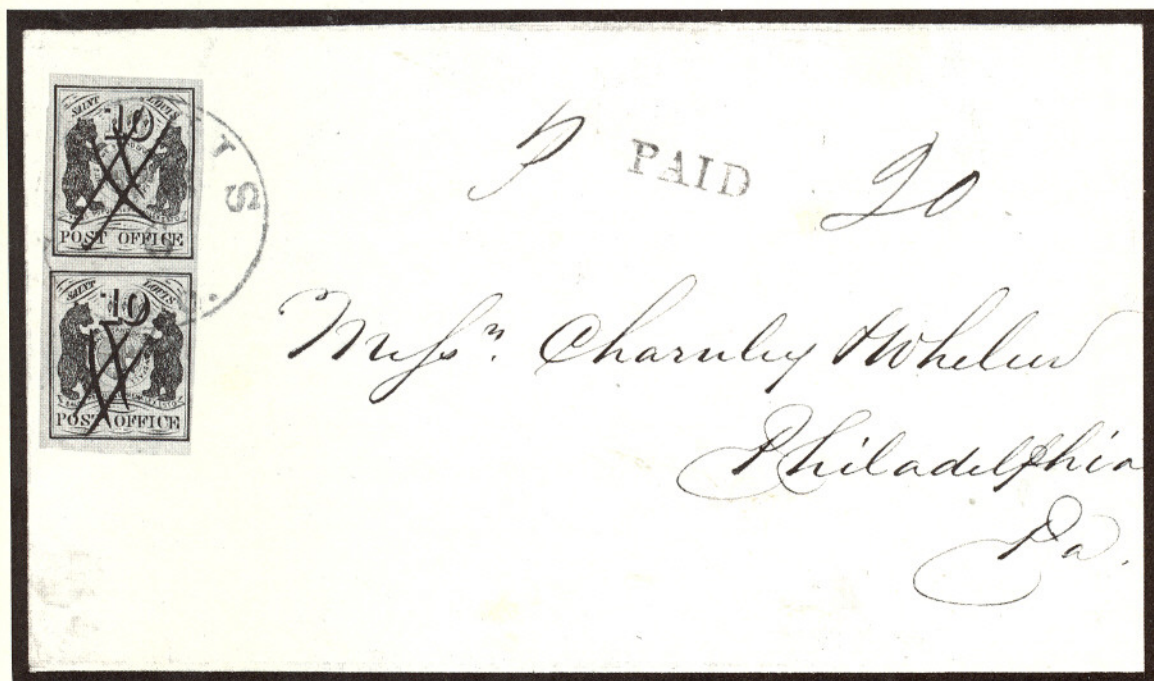 SAINT LOUIS
10
POST OFFICE
SAINT LOUIS
10
POST OFFICE
IS
PAID 20
Messrs. Charnley & Whelen
Philadelphia
Pa.